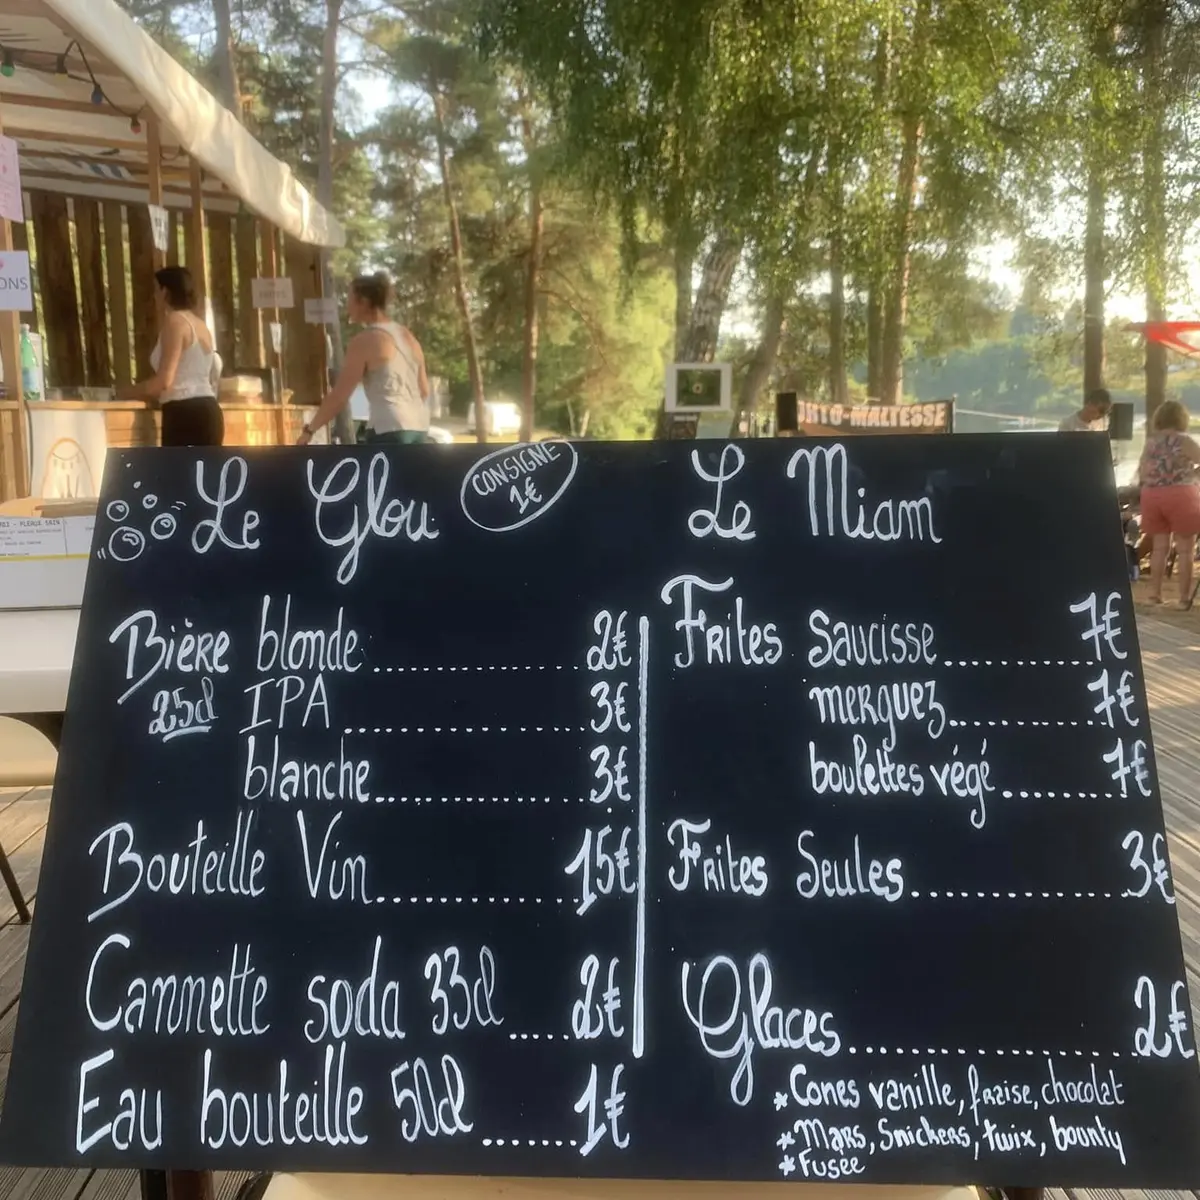 ONS
ORTO-MALTESSE
Le Glou
CONSIGNE
1€
Bière blonde 2€
25cl IPA 3€
blanche 3€
Bouteille Vin 15€
Cannette soda 33cl 2€
Eau bouteille 50cl 1€
Le Miam
Frites Saucisse 7€
merguez 7€
boulettes végé 7€
Frites Seules 3€
Glaces 2€
*Cones vanille, fraise, chocolat
*Mars, Snickers, twix, bounty
*Fusée